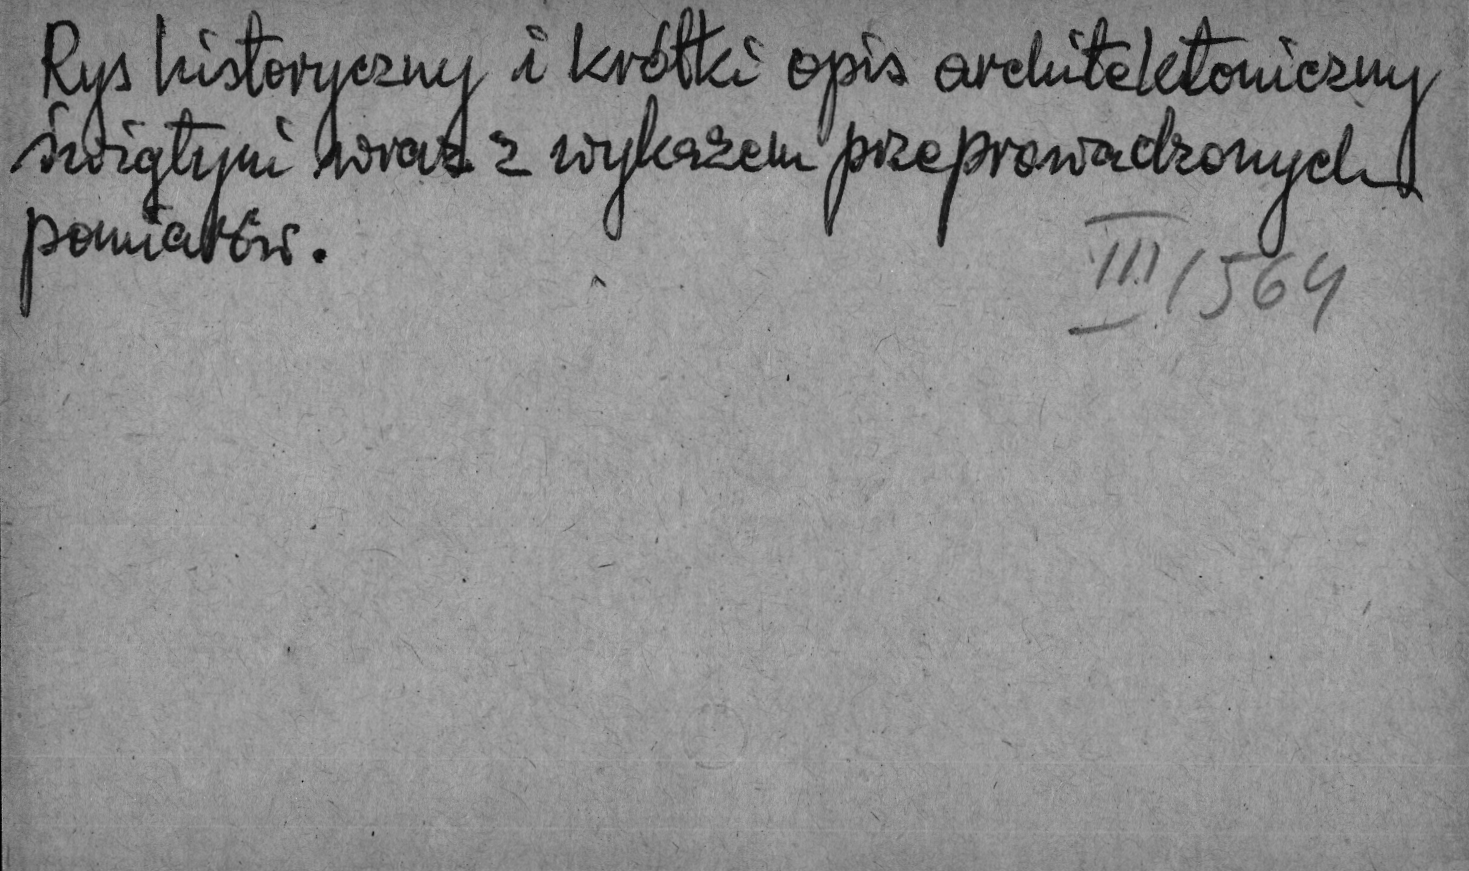 Rys historyczny i krótki opis architektoniczny
świątyni wraz z wykazem przeprowadzonych
pomiarów.
III/564